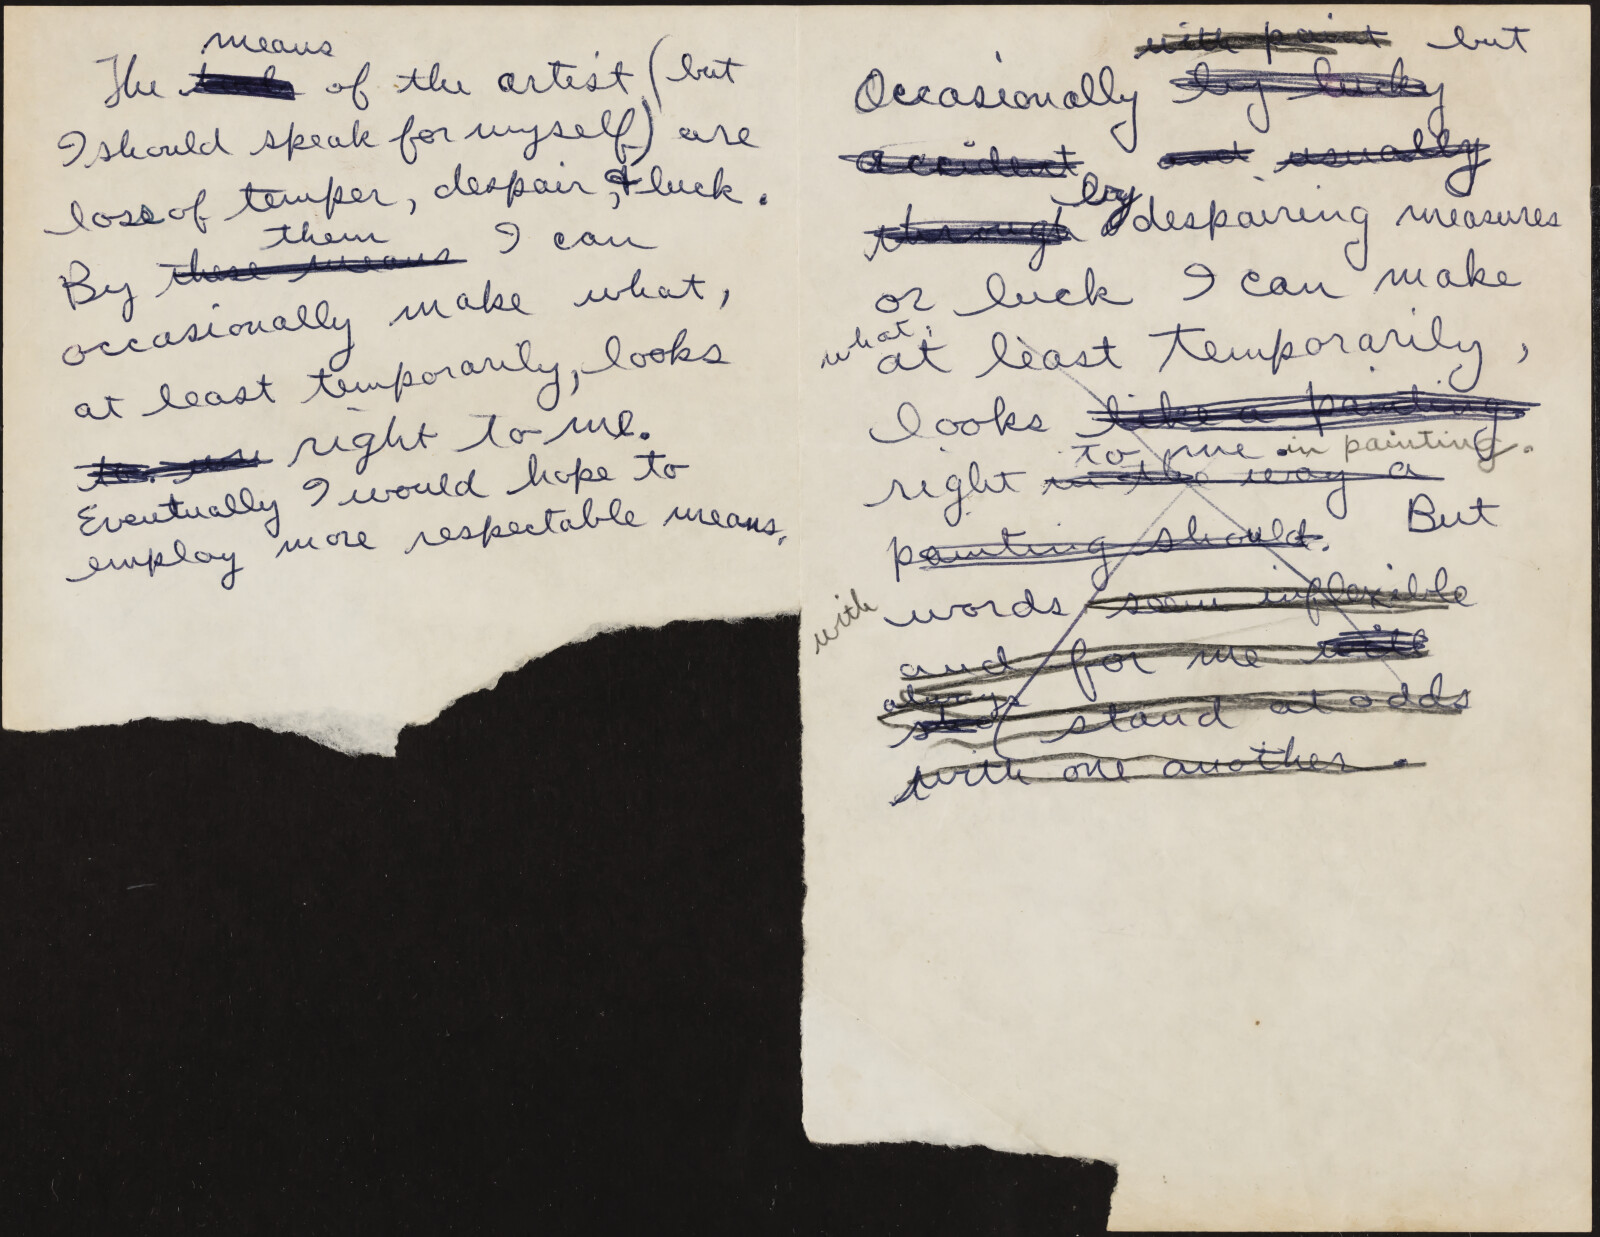 means
The tools of the artist (but
I should speak for myself) are
loss of temper, despair, & luck.
them
By these means I can
occasionally make what,
at least temporarily, looks
to me right to me.
Eventually I would hope to
employ more respectable means.
with paint but
Occasionally by lucky
accident and usually
through by despairing measures
or luck I can make
what,
at least temporarily,
looks like a painting
to me in painting.
right in the way a
painting should. But
with
words seem inflexible
and for me will
always
stand at odds
with one another.